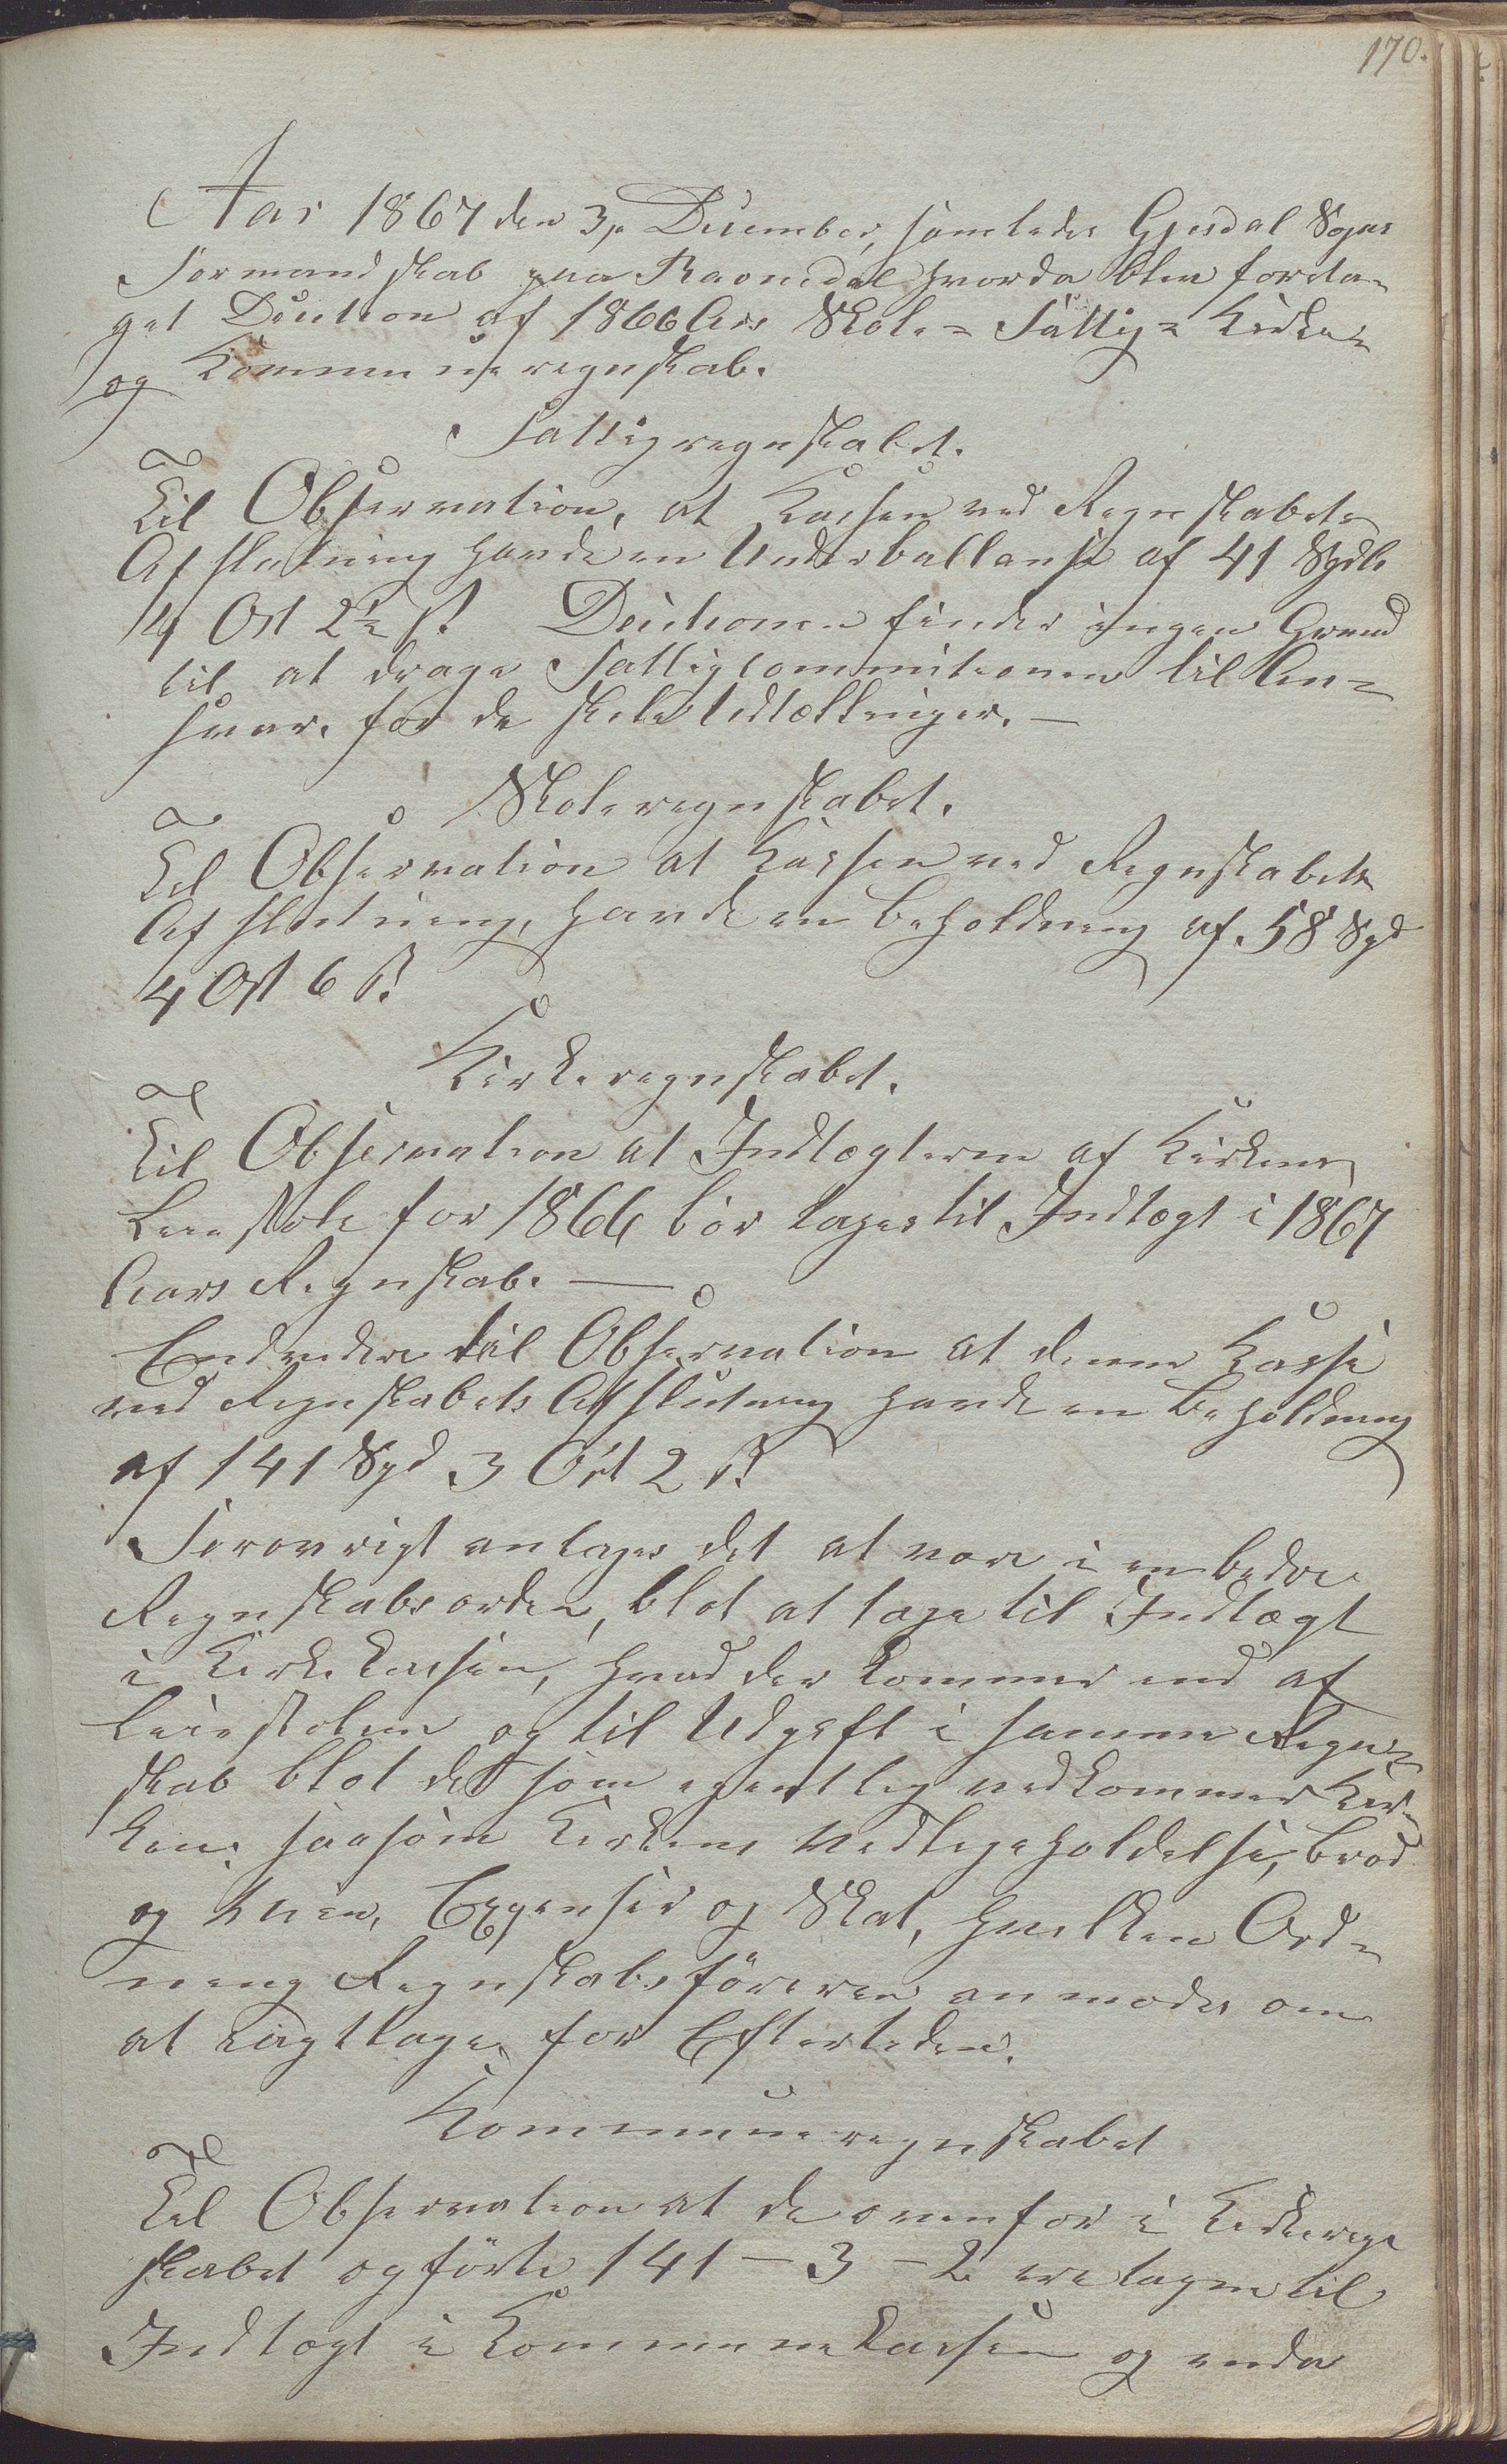 170.
Aar 1867 den 3die December, samledes Gjesdal Sogns
Formandskab paa Ravndal hvorda blev foreta-
get Decition af 1866 Aars Skole- Fattig- Kirke-
og Kommuneregnskab.
Fattigregnskabet.
Til Observation, at Kassen ved Regnskabets
Afslutning havde en Underballanse af 41 Spdlr
4 Ort 2½ s. Decitionen finder ingen Grund
til at drage Fattigcommitionen til An-
svar for de skete Udtællinger. —
Skoleregnskabet.
Til Observation at Kassen ved Regnskabets
Afslutning, havde en Beholdning af 58 Spd
4 Ort 6 s.
Kirkeregnskabet.
Til Observation at Indtægterne af Kirkens
Leiestole for 1866 bör tages til Indtægt i 1867
Aars Regnskab. —
Endvidere til Observation at denne Kasse
ved Regnskabets Afslutning havde en Beholdning
af 141 Spd 3 Ort 2 s.
Forøvrigt antages det at være i en bedre
Regnskabsorden, blot at tage til Indtægt
i Kirkekassen, hvad der kommer ind af
Leiestolene og til Udgift i samme Regn-
skab blot det som egentlig vedkommer Kir-
ken, saasom Kirkens Vedligeholdelse, Brød
og Viin, Expenser og Skat, hvilken Ord-
ning Regnskabsföreren anmodes om
at iagttage for Eftertiden.
Kommuneregnskabet
Til Observation at de ovenfor i Kirkeregn
skabet opförte 141 - 3 - 2 ere tagen til
Indtægt i Kommunekassen og ender